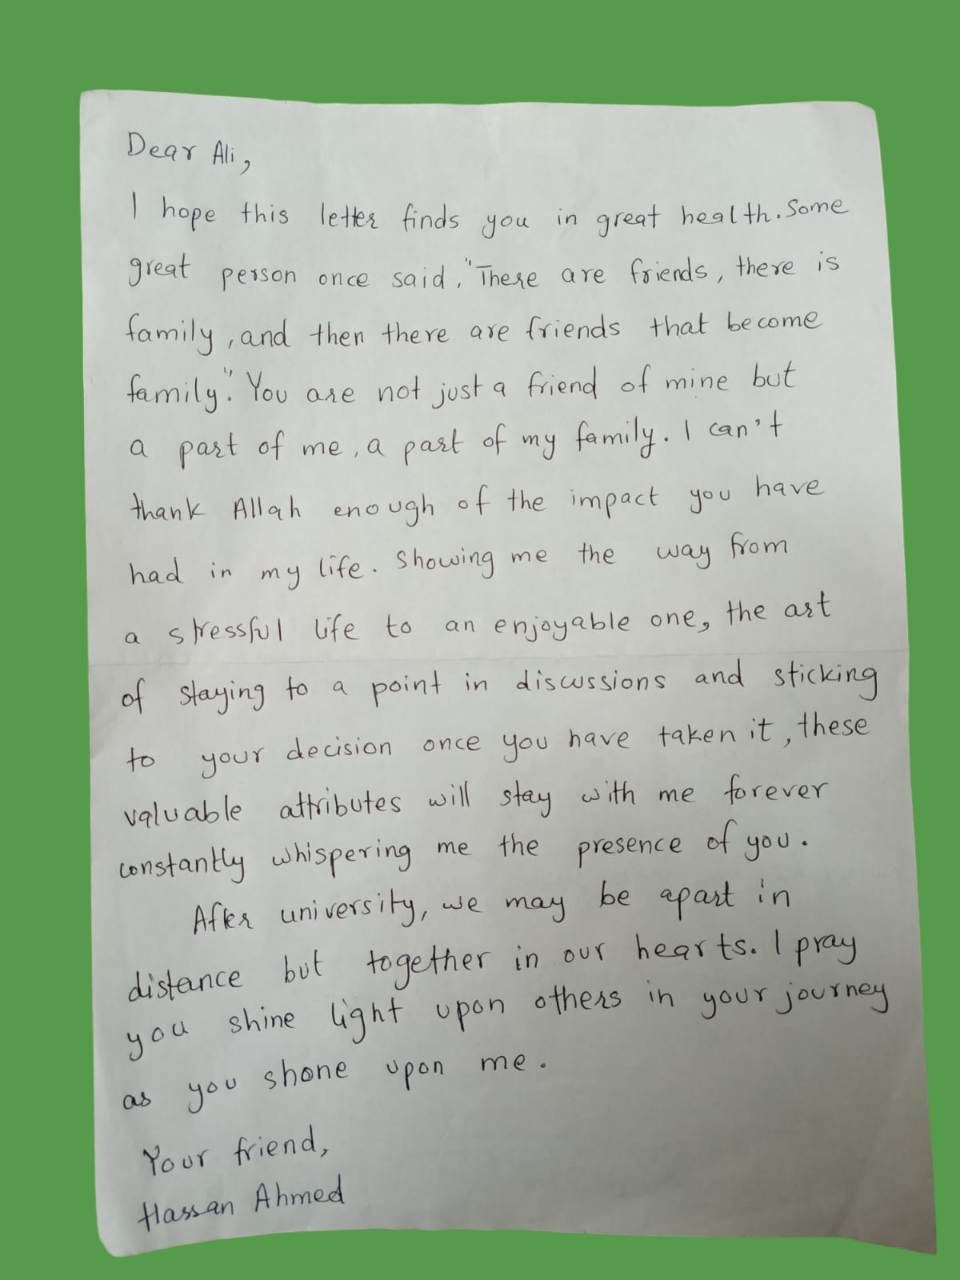 Dear Ali,
I hope this letter finds you in great health. Some
great person once said, "There are friends, there is
family, and then there are friends that become
family". You are not just a friend of mine but
a part of me, a part of my family. I can't
thank Allah enough of the impact you have
had in my life. Showing me the way from
a stressful life to an enjoyable one, the art
of staying to a point in discussions and sticking
to your decision once you have taken it, these
valuable attributes will stay with me forever
constantly whispering me the presence of you.
After university, we may be apart in
distance but together in our hearts. I pray
you shine light upon others in your journey
as you shone upon me.
Your friend,
Hassan Ahmed